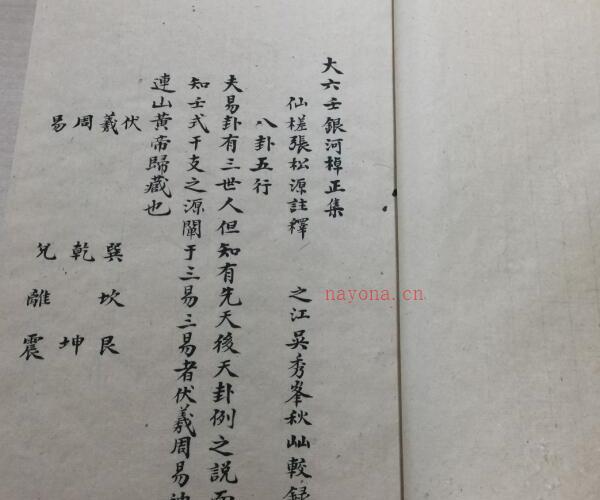 大六壬銀河棹正集
仙槎張松源註釋 之江吳秀峯秋山較録
八卦五行
夫易卦有三世人但知有先天後天卦例之說而
知壬式干支之源闡于三易三易者伏羲周易神
連山黃帝歸藏也
伏羲周易
巽 乾 兌
坎 離
艮 坤 震
nayona.cn